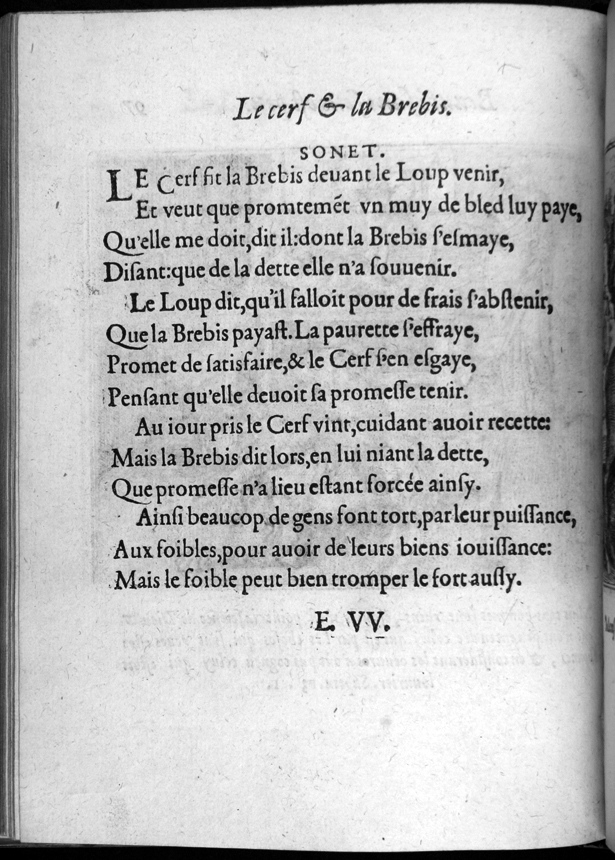 Le cerf & la Brebis.
SONET.
LE Cerf fit la Brebis deuant le Loup venir,
Et veut que promtemēt vn muy de bled luy paye,
Qu'elle me doit,dit il:dont la Brebis ſ'eſmaye,
Diſant:que de la dette elle n'a ſouuenir.
Le Loup dit,qu'il falloit pour de frais ſ'abſtenir,
Que la Brebis payaſt.La paurette ſ'effraye,
Promet de ſatisfaire,& le Cerf ſ'en eſgaye,
Penſant qu'elle deuoit ſa promeſſe tenir.
Au iour pris le Cerf vint,cuidant auoir recette:
Mais la Brebis dit lors,en lui niant la dette,
Que promeſſe n'a lieu eſtant forcée ainſy.
Ainſi beaucop de gens font tort,par leur puiſſance,
Aux foibles,pour auoir de leurs biens iouiſſance:
Mais le foible peut bien tromper le fort auſſy.
E. VV.